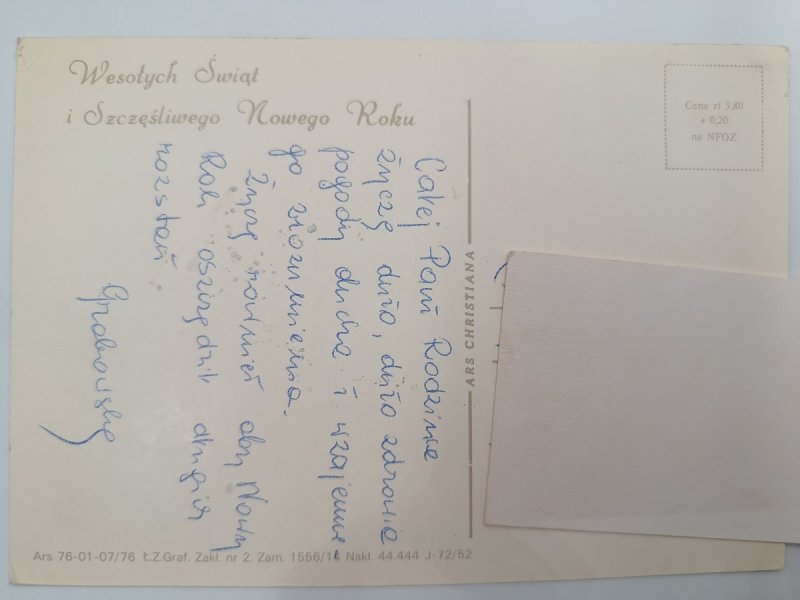 Wesołych Świąt
i Szczęśliwego Nowego Roku
Cena zł 3,80
+ 0,20
na NFOZ
Całej Pani Rodzinie
życzę dużo, dużo zdrowia
pogody ducha i wzajemne-
go zrozumienia.
Życzę również aby Nowy
Rok oszczędził długich
rozstań
Grabowska
ARS CHRISTIANA
Ars 76-01-07/76 Ł.Z.Graf. Zakł. nr 2. Zam. 1556/14 Nakł. 44.444 J-72/52